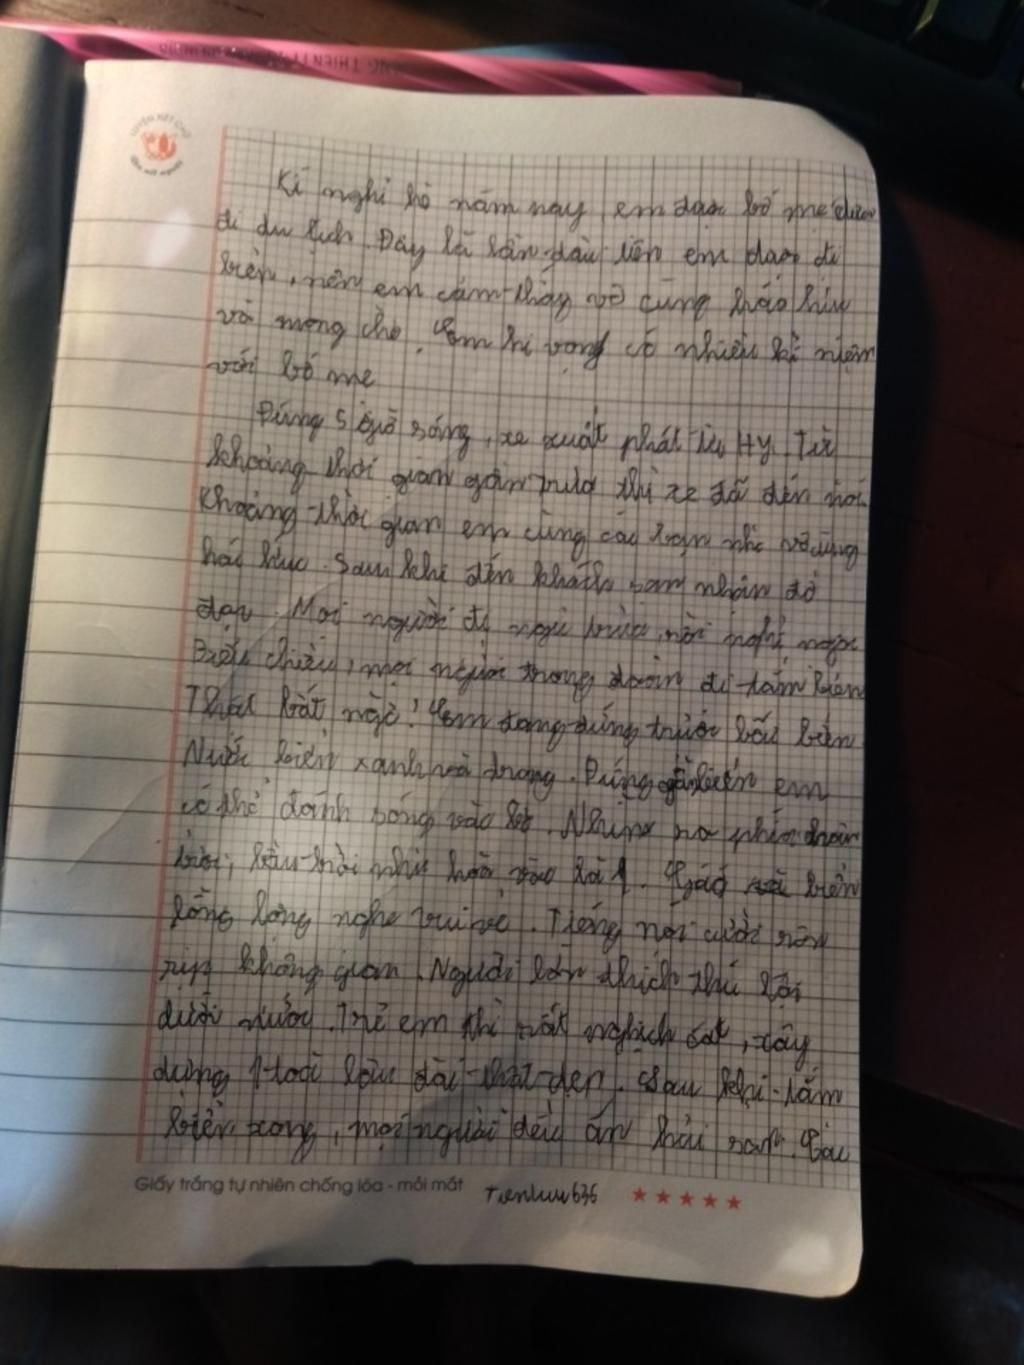 LUYỆN NÉT CHỮ
Kì nghỉ hè năm nay, em được bố mẹ đưa
đi du lịch. Đây là lần đầu tiên em được đi
biển, nên em cảm thấy vô cùng háo hức
và mong chờ. Em hi vọng có nhiều kỉ niệm
với bố mẹ
Đúng 5 giờ sáng, xe xuất phát từ Hy. Từ
khoảng thời gian gần trưa thì xe đã đến nơi
Khoảng thời gian em cùng các bạn nhỏ vô cùng
háo hức. Sau khi đến khách sạn nhận đồ
đạc. Mọi người đi ngủ trưa, rồi nghỉ ngơi
Buổi chiều, mọi người trong đoàn đi tắm biển
Thật bất ngờ! Em đang đứng trước bãi biển
Nước biển xanh và trong. Đứng gần biển em
có thể đánh sóng vào bờ. Nhìn ra phía chân
trời, bầu trời như hoà vào là 1. Gió biển
lồng lộng nghe vui vẻ. Tiếng nói cười rộn
rịp không gian. Người lớn thích thú lội
dưới nước. Trẻ em thì rất nghịch cát, xây
dựng 1 toà lâu đài thật đẹp. Sau khi tắm
biển xong, mọi người đều ăn hải sản. Các
Giấy trắng tự nhiên chống lóa - mỏi mắt Tienluu636